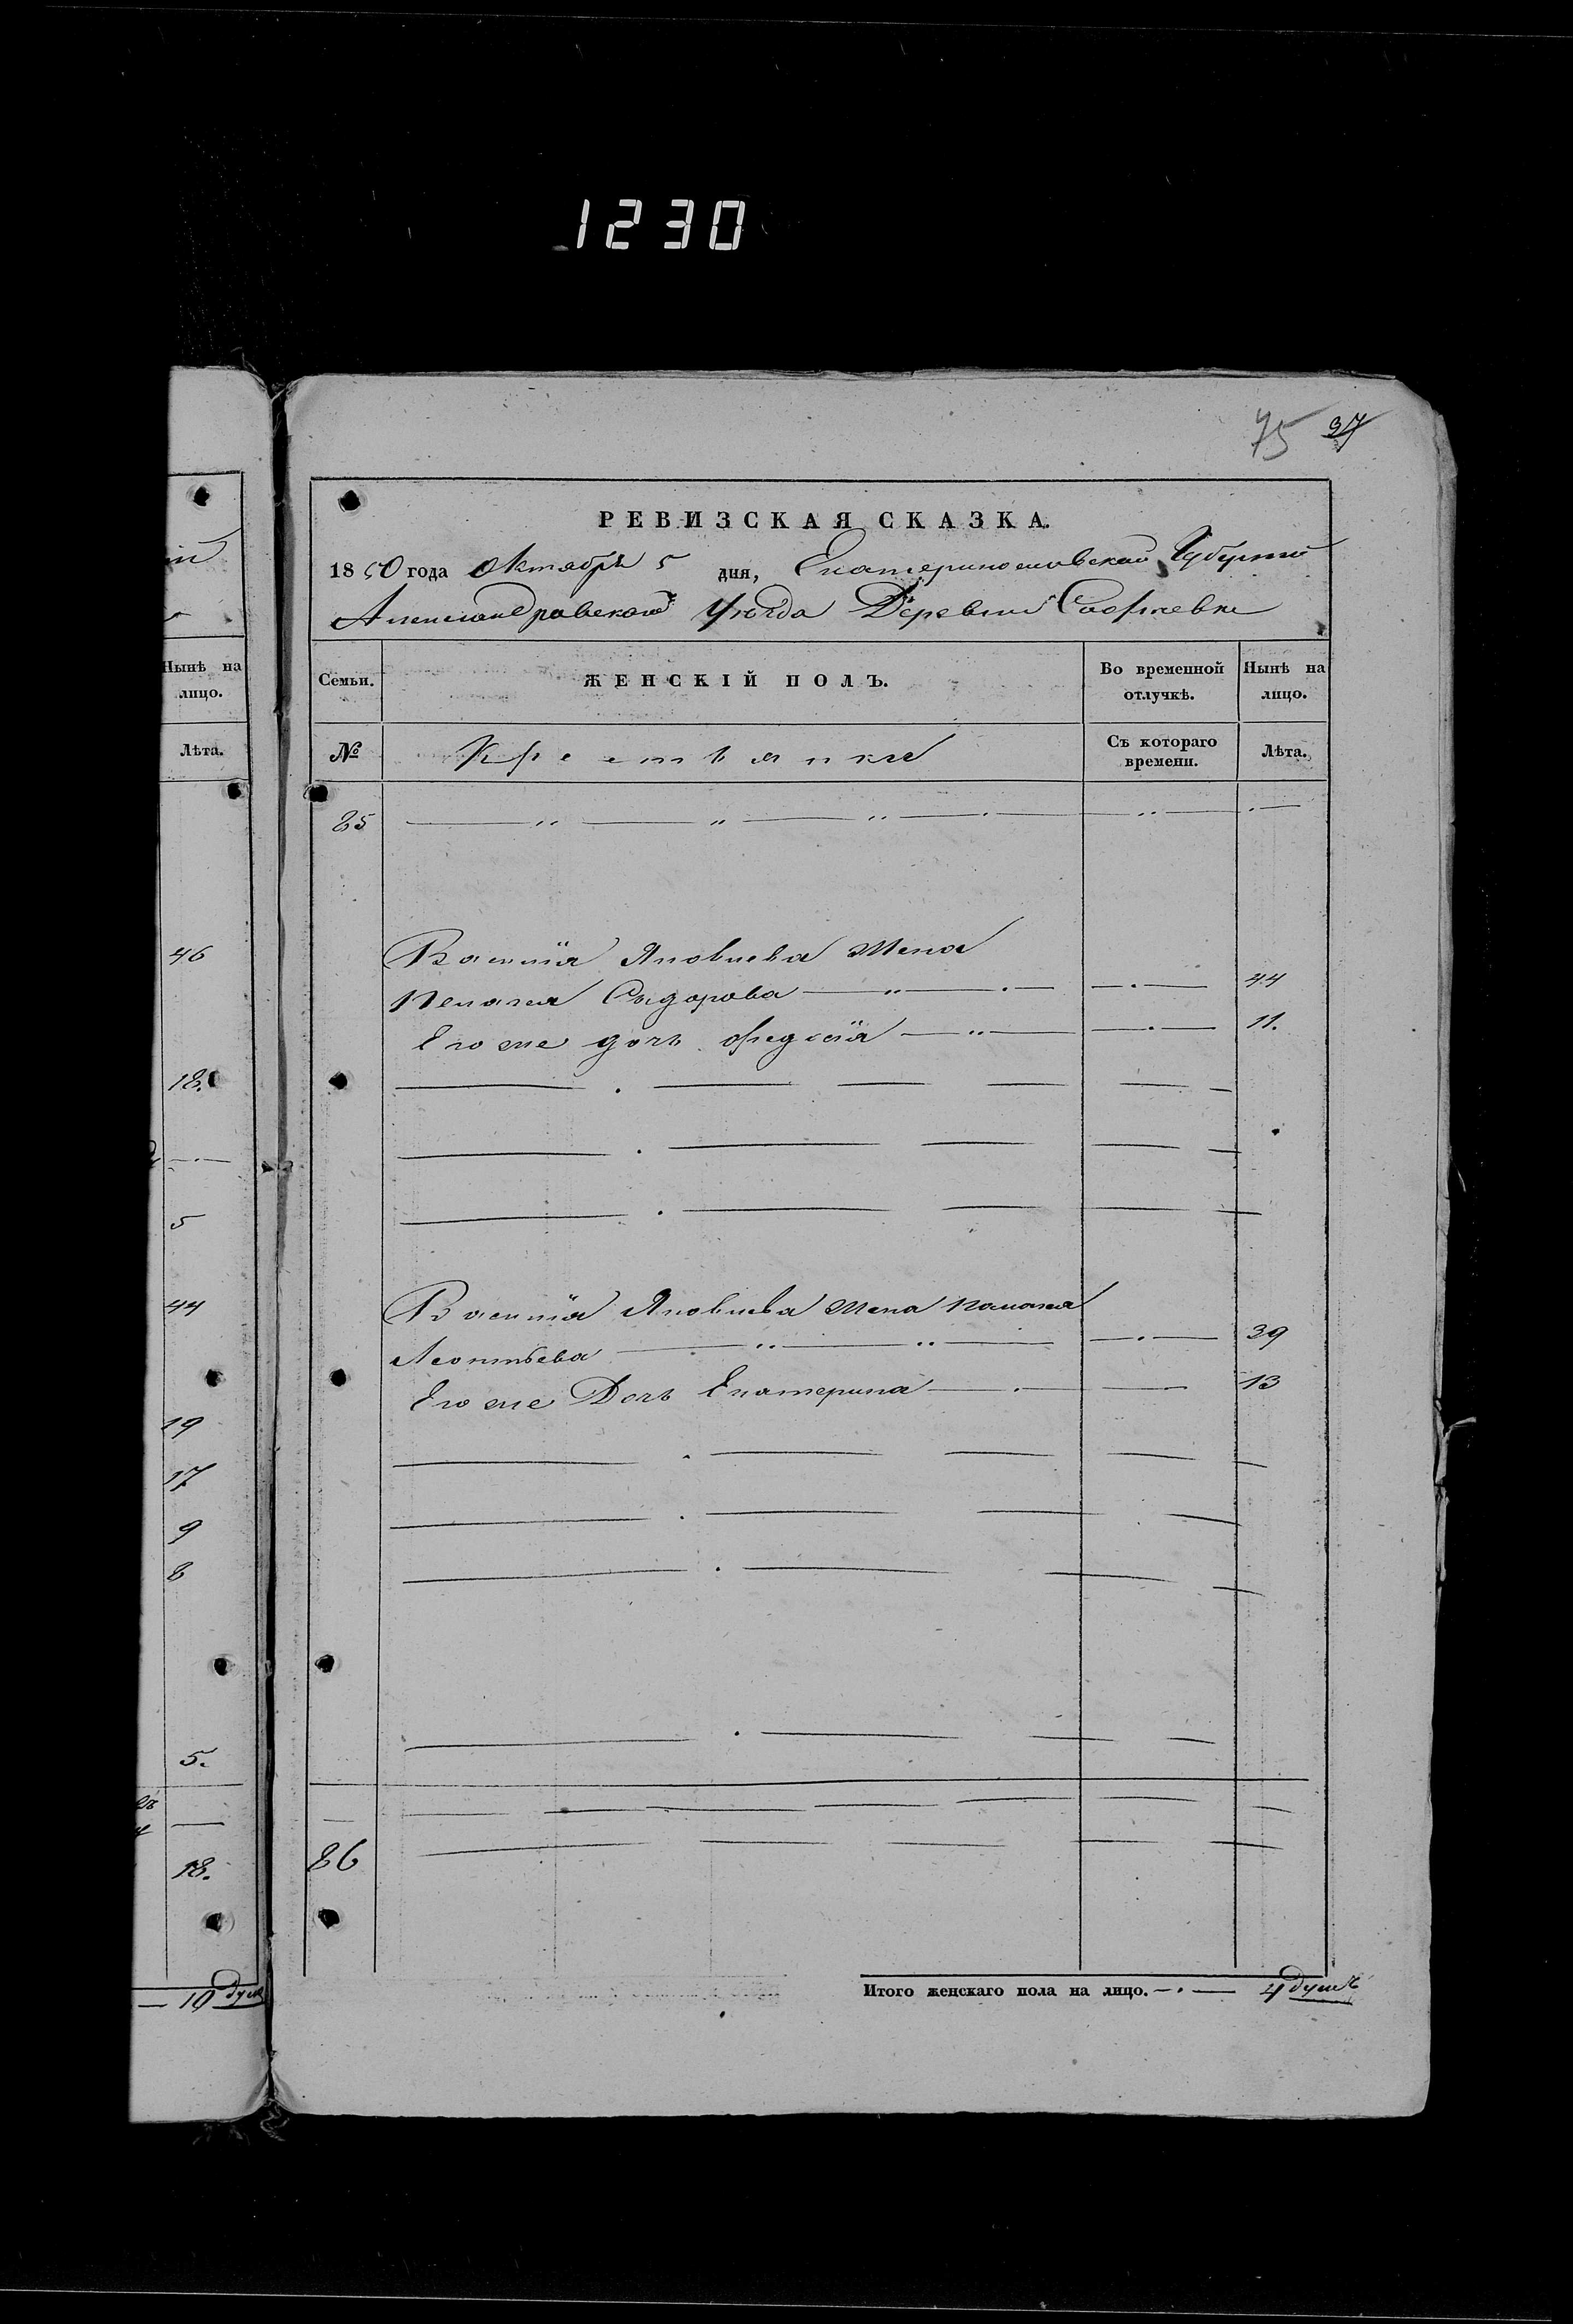 1230
75 37
РЕВИЗСКАЯ СКАЗКА.
1850 года Октября 5 дня, Екатеринославской Губернии
Александровского Уезда Деревни
Нынѣ на
лицо.
Лѣта.
46
18.
5
44
19
17
9
8
5.
18.
— 19 душ
Семьи.
ЖЕНСКІЙ ПОЛЪ.
Во временной
отлучкѣ.
Нынѣ на
лицо.
№
Крестьянки
Съ котораго
времени.
Лѣта.
85
Василия Яковлева Жена
Пелагея Сидорова 44
Его же дочь Федосія 11.
Василия Яковлева Жена Палагея
Леонтьева 39
Его же Дочь Екатерина 13
86
Итого женскаго пола на лицо. 4 душъ